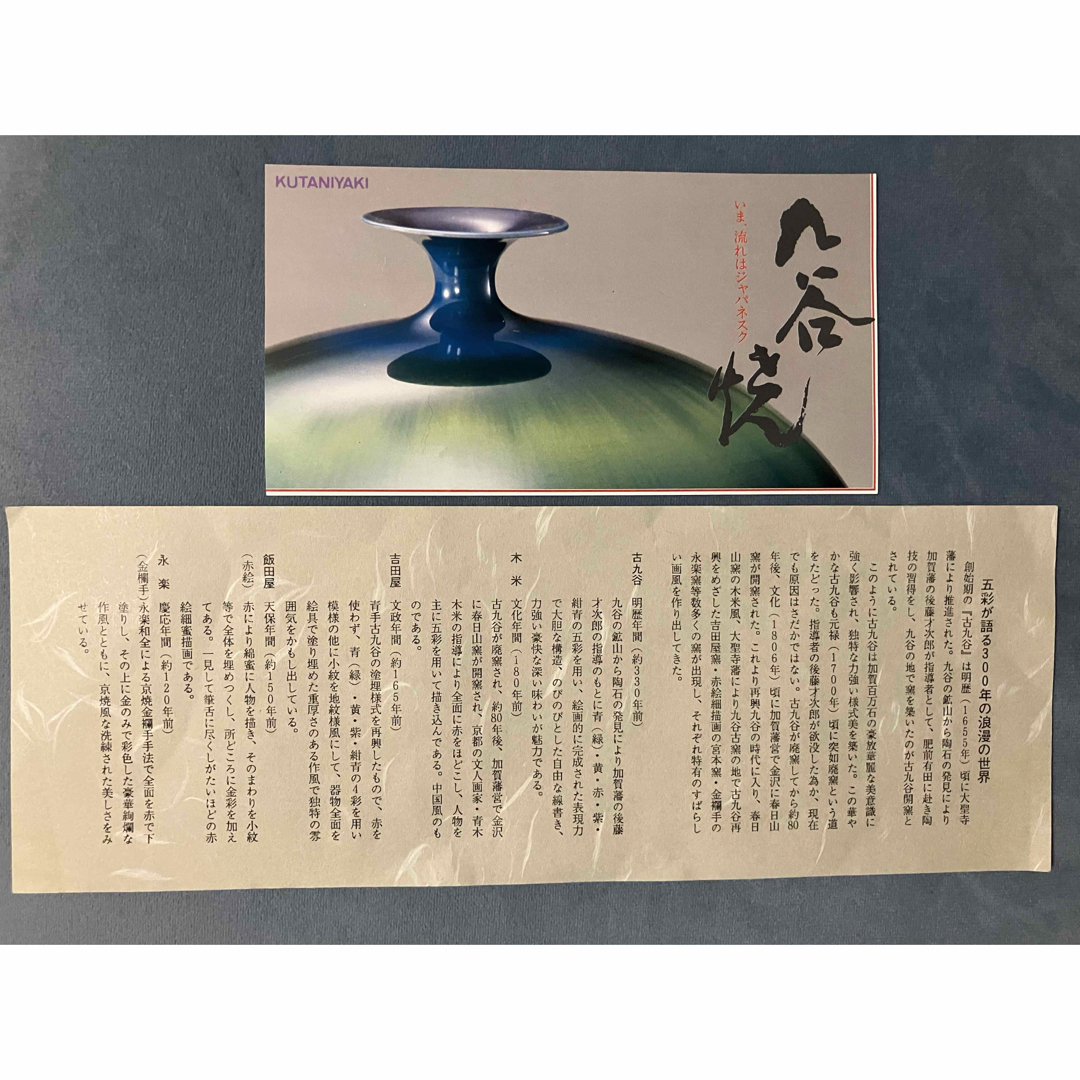 KUTANIYAKI
九谷焼
いま、流れはジャパネスク
五彩が語る300年の浪漫の世界
創始期の『古九谷』は明暦(1655年)頃に大聖寺
藩により推進された。九谷の鉱山から陶石の発見により
加賀藩の後藤才次郎が指導者として、肥前有田に赴き陶
技の習得をし、九谷の地で窯を築いたのが古九谷開窯と
されている。
このように古九谷は加賀百万石の豪放華麗な美意識に
強く影響され、独特な力強い様式美を築いた。この華や
かな古九谷も元禄(1700年)頃に突如廃窯という道
をたどった。指導者の後藤才次郎が欲没した為か、現在
でも原因はさだかではない。古九谷が廃窯してから約80
年後、文化(1806年)頃に加賀藩営で金沢に春日山
窯が開窯された。これより再興九谷の時代に入り、春日
山窯の木米風、大聖寺藩により九谷古窯の地で古九谷再
興をめざした吉田屋窯・赤絵細描画の宮本窯・金襴手の
永楽窯等数多くの窯が出現し、それぞれ特有のすばらし
い画風を作り出してきた。
古九谷 明暦年間(約330年前)
九谷の鉱山から陶石の発見により加賀藩の後藤
才次郎の指導のもとに青(緑)・黄・赤・紫・
紺青の五彩を用い、絵画的に完成された表現力
で大胆な構造、のびのびとした自由な線書き、
力強い豪快な深い味わいが魅力である。
木米 文化年間(180年前)
古九谷が廃窯され、約80年後、加賀藩営で金沢
に春日山窯が開窯され、京都の文人画家・青木
木米の指導により全面に赤をほどこし、人物を
主に五彩を用いて描き込んである。中国風のも
のである。
吉田屋 文政年間(約165年前)
青手古九谷の塗埋様式を再興したもので、赤を
使わず、青(緑)・黄・紫・紺青の4彩を用い
模様の他に小紋を地紋様風にして、器物全面を
絵具で塗り埋めた重厚さのある作風で独特の雰
囲気をかもし出している。
飯田屋 天保年間(約150年前)
(赤絵) 赤により綿蜜に人物を描き、そのまわりを小紋
等で全体を埋めつくし、所どころに金彩を加え
てある。一見して筆古に尽くしがたいほどの赤
絵細蜜描画である。
永楽 慶応年間(約120年前)
(金襴手) 永楽和全による京焼金襴手手法で全面を赤で下
塗りし、その上に金のみで彩色した豪華絢爛な
作風とともに、京焼風な洗練された美しさをみ
せている。